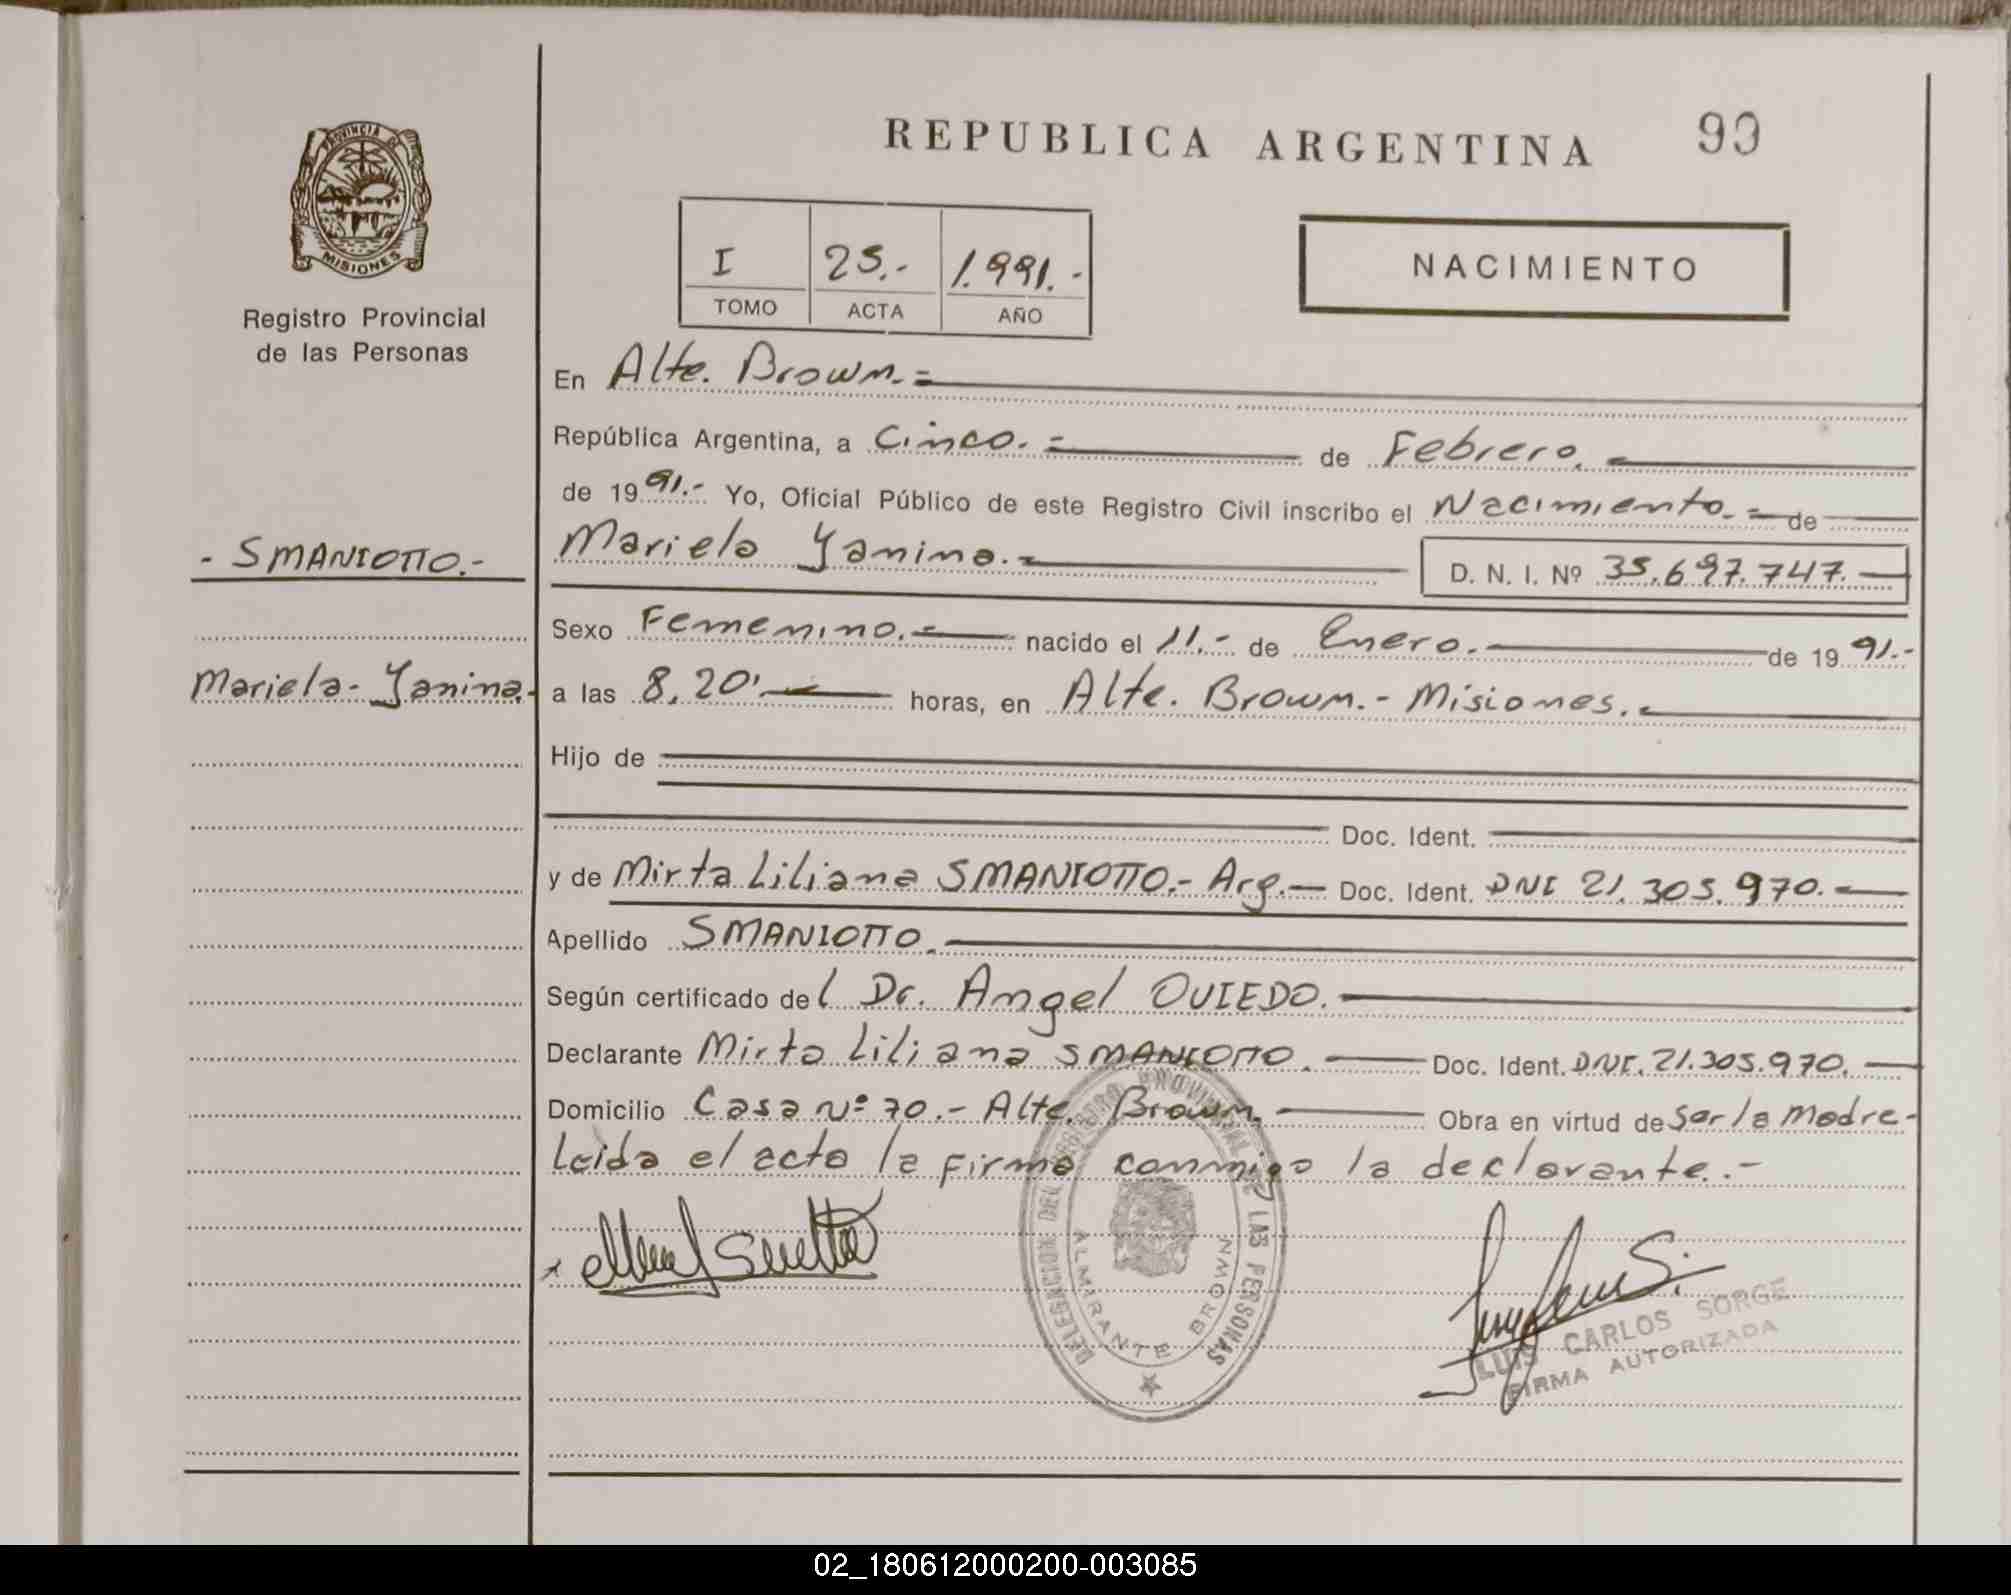 REPUBLICA ARGENTINA
99
PROVINCIA DE
MISIONES
Registro Provincial
de las Personas
I 25.- 1.991.-
TOMO ACTA AÑO
NACIMIENTO
En Alte. Brown.=
República Argentina, a Cinco.= de Febrero.
de 1991.- Yo, Oficial Público de este Registro Civil inscribo el Nacimiento.= de
- SMANIOTTO.-
Mariela Yanina.- D. N. I. Nº 35.697.747.
Sexo Femenino.- nacido el 11.- de Enero. de 1991.-
Mariela- Yanina.-
a las 8,20' horas, en Alte. Brown.- Misiones.
Hijo de
Doc. Ident.
y de Mirta Liliana SMANIOTTO.- Arg.- Doc. Ident. DNI 21.305.970.
Apellido SMANIOTTO.
Según certificado del Dr. Angel OVIEDO.
Declarante Mirta Liliana SMANIOTTO. Doc. Ident. DNI. 21.305.970.
Domicilio Casa Nº 70.- Alte. Brown. Obra en virtud de Ser la Madre-
Leida el acta la firma conmigo la declarante.-
DELEGACION DEL REGISTRO PROVINCIAL DE LAS PERSONAS
ALMIRANTE BROWN
LUIS CARLOS SORGE
FIRMA AUTORIZADA
02_180612000200-003085